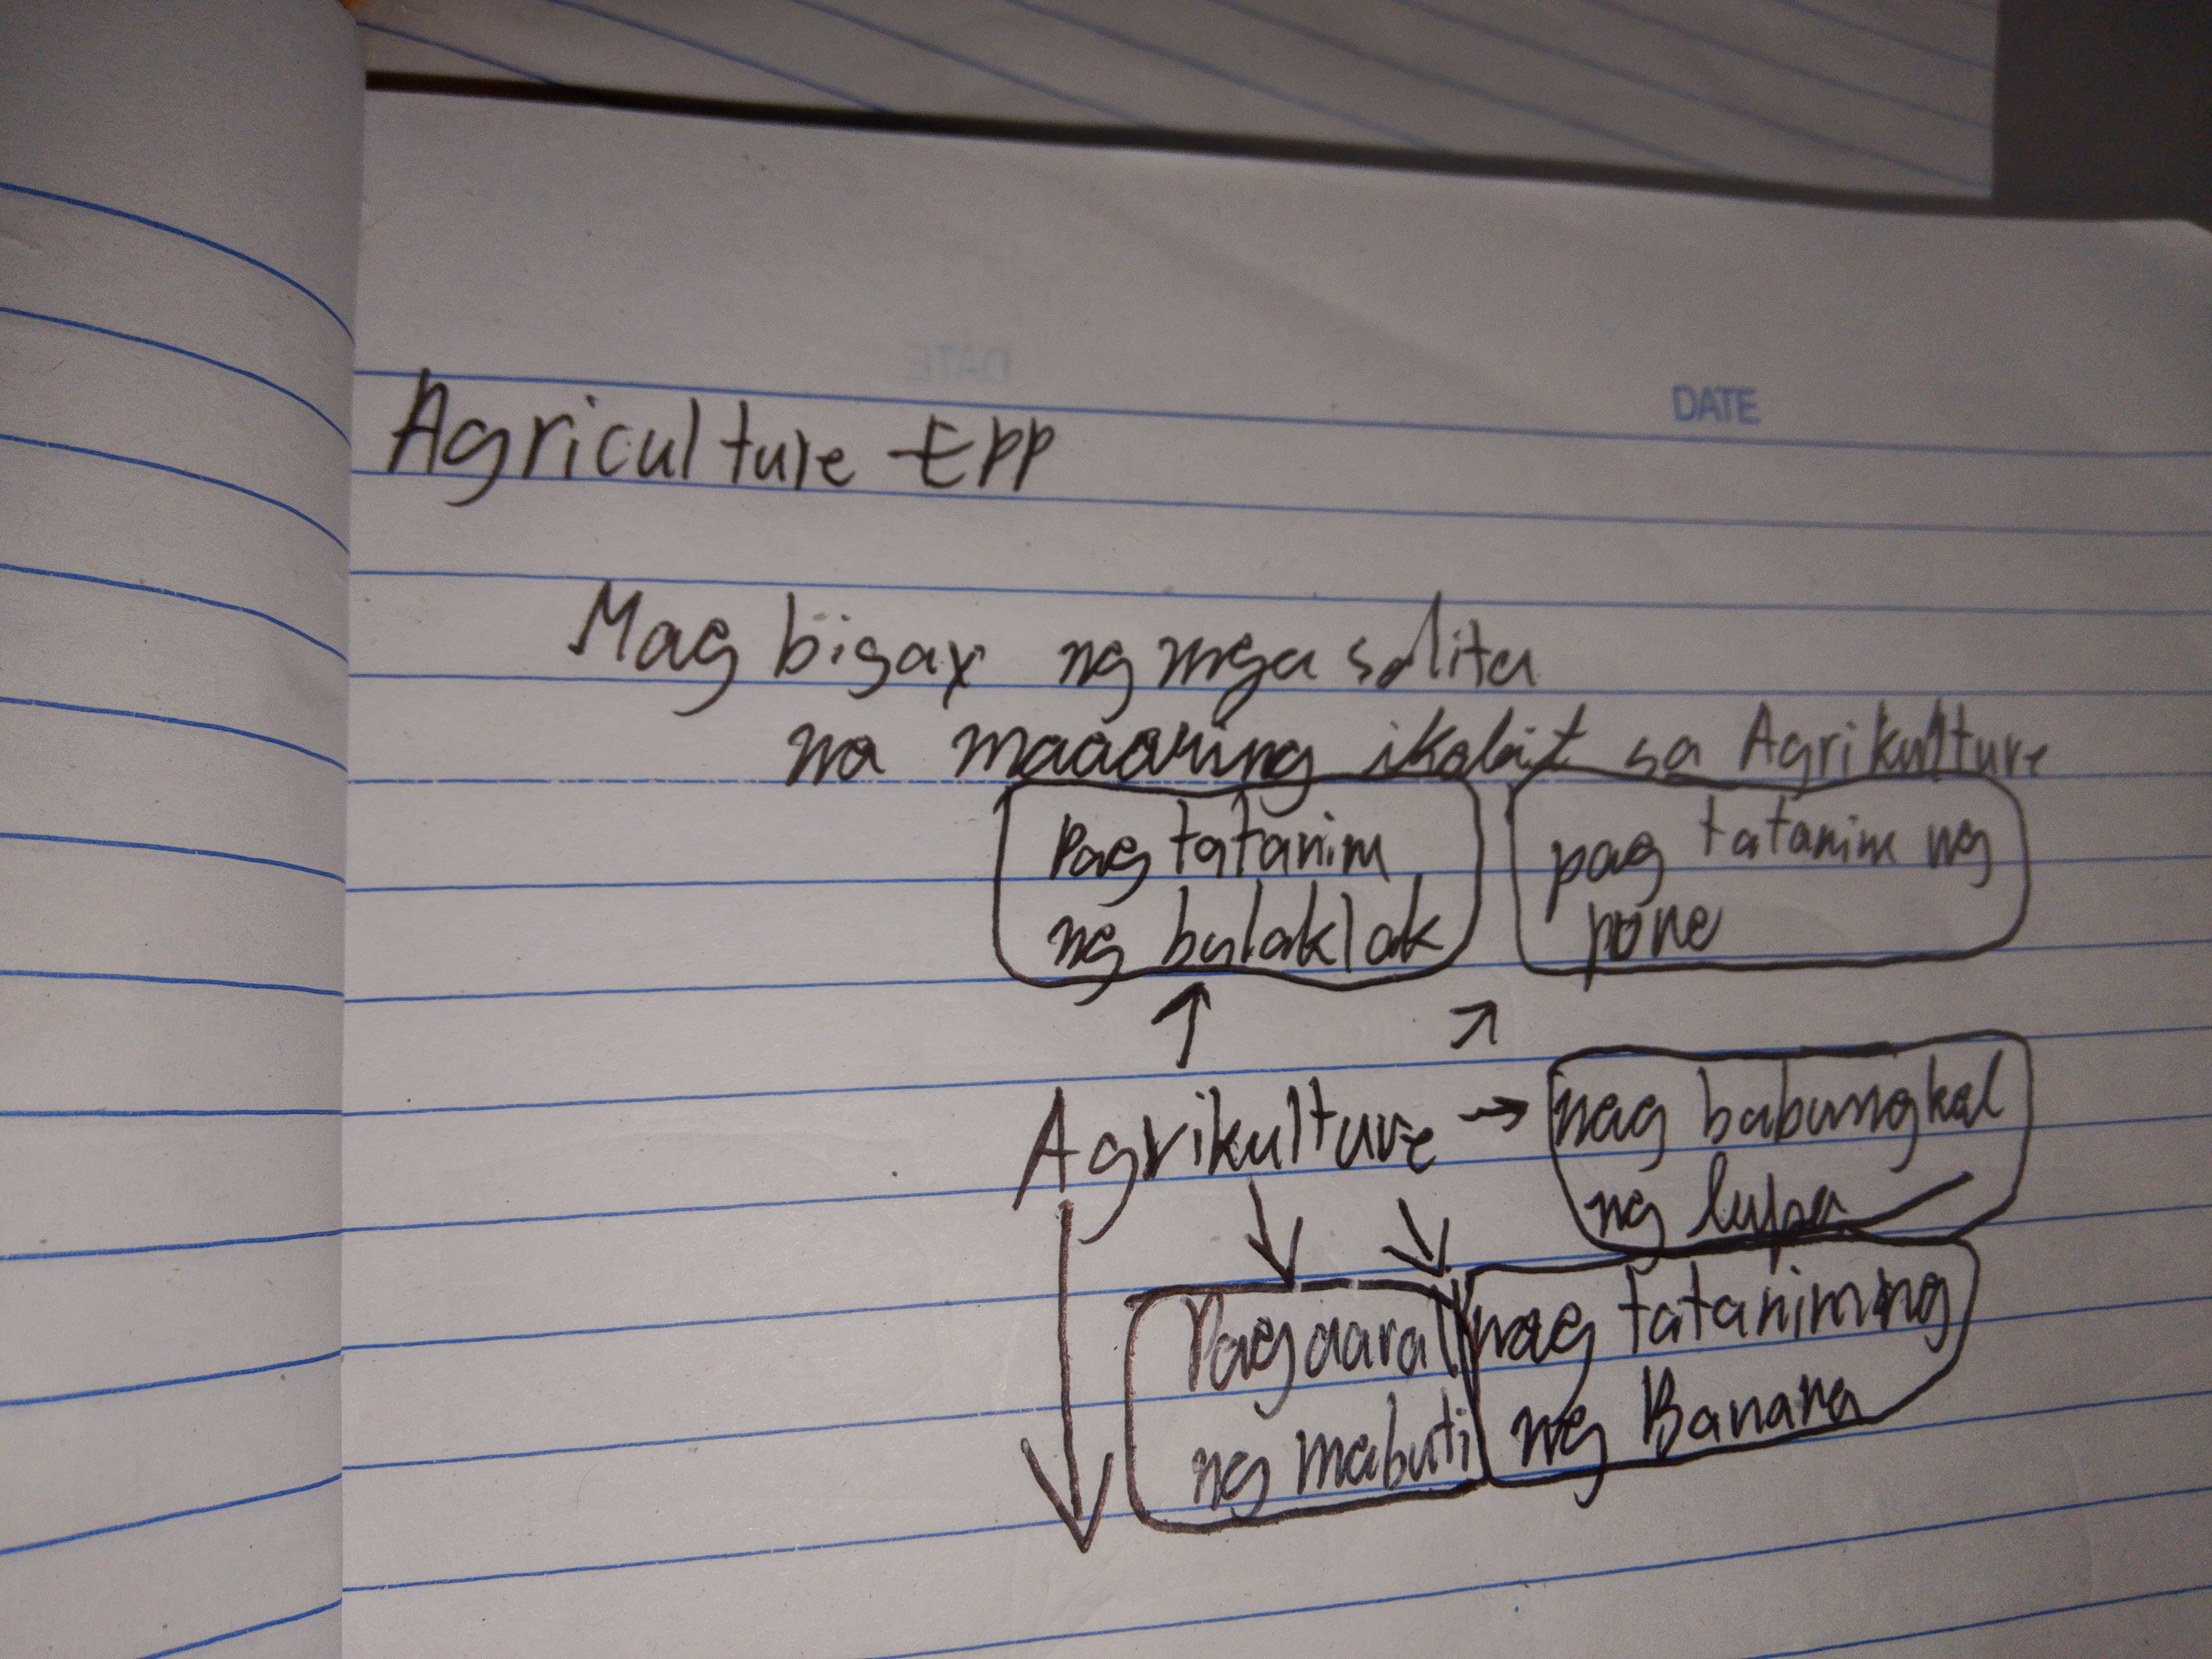 DATE
Agriculture EPP
Mag bigay ng mga salita
na maaaring ikabit sa Agrikulture
Pag tatanim
ng bulaklak
pag tatanim ng
pone
Agrikulture
nag babungkal
ng lupa
Pag aaral
ng mabuti
nag tatanim ng
ng Banana